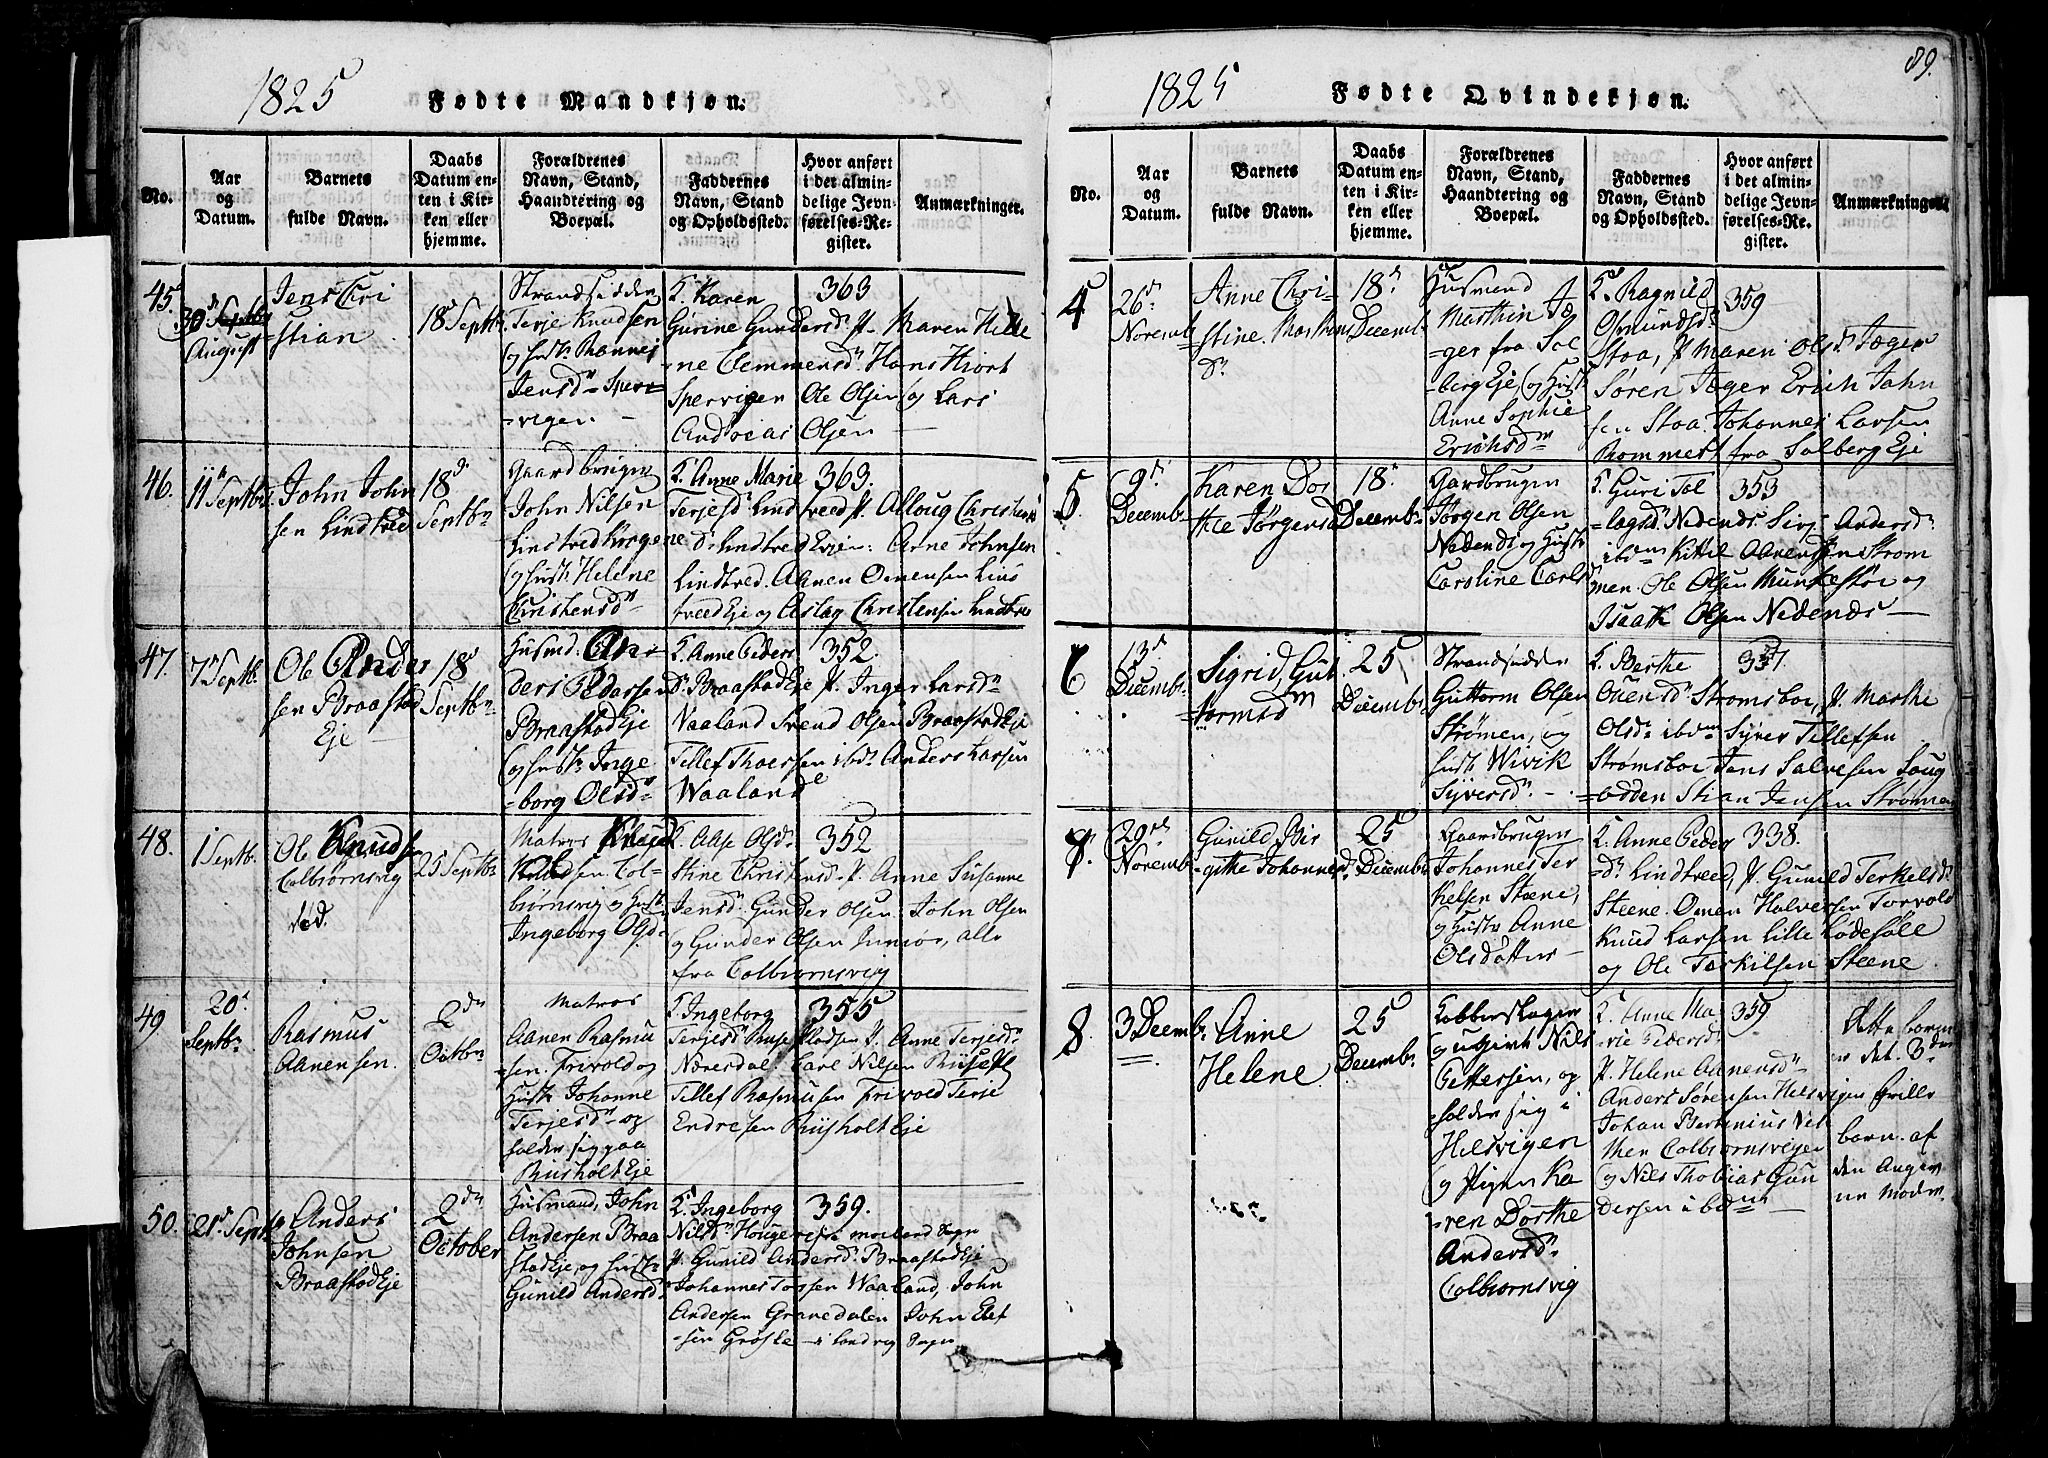 1825
Fødte Mandkjøn.
No.
Aar
og
Datum.
Barnets
fulde Navn.
Daabs
Datum en-
ten i Kir-
ken eller
hjemme.
Forældrenes
Navn, Stand,
Haandtering og
Boepæl.
Faddernes
Navn, Stand
og Opholdssted.
Hvor anført
i det almin-
delige Jevn-
førelses-Re-
gister.
Anmærkninger.
45.
August
Jens Chri
stian
18 Septbr
Strandsidder
Terje Knudsen
og hustr
Jensdr Sper=
=vigen
K. Karen
Gurine Gundersdr P. Maren Hele
=ne Clemmensdr Hans Hiort
Spervigen Ole Olsen og Lars
Andreas Olsen
363
46.
11 Septbr
John John
sen Lindtved
18d
Septbr
Gaardbruger
John Nilsen
Lindtved
og hustr Helene
Christensdr
K. Anne Marie
Terjesdr Lindtveed P. Christens
dr Lindtved Arne Johnsen
Lindtved. Aanen Omensen Lind
tveed Eje og Aslag Christensen Lindtve
363.
47.
7 Septbr.
Ole Ander
sen Braastad
Eje
18d
Septbr
Husmd. An=
ders Pedersen
Braastad Eje
og hustr Inge
=borg Olsdr
K. Anne Peders
dr Braastad Eje P. Inger Larsdr
Vaaland Svend Olsen Braastad Eje
Tellef Thoersen ibdm Anders Larsen
Waaland
352.
48.
1 Septbr.
Ole Knudsen
Colbiørnsvig
25 Septbr
Matros Knud
Knudsen Col=
biørnsvig og hustr
Ingeborg Olsdr
K. Aase Olsdr
Stine Christensdr P. Anne Susanne
Jensdr Gunder Olsen John Olsen
og Gunder Olsen Junior, alle
fra Colbiørnsvig
352
49
20d
Septbr
Rasmus
Aanensen.
2den
Octbr
Matros
Aanen Rasmu
sen Frivold og
Hustr Johanne
Terjesdr og
holder sig paa
Riisholt Eje
K Ingeborg
Terjesdr P. Anne Terjesdr
Næresdal. Carl Nilsen
Tellef Rasmusen Frivold Terje
Endresen Riisholt Eje
355
50.
21d Septbr
Anders
Johnsen
Braastad Eje
2den
October
Husmand, John
Andersen Braa
stad Eje, og hustr
Gunild Andersdr
K. Ingeborg
Nilsdr Houge Sogn
P. Gunild Andersdr Braastad Eje
Johannes Waaland, John
Andersen Gravedalen John Elef
sen Grøske i Landvig Sogn
359.
89.
1825
Fødte Qvindekjøn.
No.
Aar
og
Datum.
Barnets
fulde Navn.
Daabs
Datum en-
ten i Kir-
ken eller
hjemme.
Forældrenes
Navn, Stand,
Haandtering og
Boepæl.
Faddernes
Navn, Stand
og Opholdssted.
Hvor anført
i det almin-
delige Jevn-
førelses-Re-
gister.
Anmærkninger.
4
26d
Novemb
Anne Chri=
stine Marthins
dr
18d
Decemb
Husmand
Marthin Jæ
=ger fra Sol
=berg Eje, og Hustr
Anne Sophie
Erichsdr
K. Ragnild
Osmundsdr
Stoa, P. Maren Olsdr Jæger
Søren Jæger Erich John
sen Stoa Johannes Larsen
fra Solberg Eje
359
5.
9d
Decemb
Karen Dor
thee Jørgensdr
18d
Decembr
Gardbruger
Jørgen Olsen
Nedenes og Hustr
Caroline Carlsdr
K. Guri Tol
=lagsdr Nedenes Siri Andersdr
ibdm Kittil Strøm
men. Ole Olsen Munkestøe og
Isaak Olsen Nedenes
353
6
13d
Decemb.
Sigrid, Gut
=tormsdr
25
Decembr
Strandsidder
Guttorm Olsen
Strømen, og
hustr Wivik
Syversdr
K. Berthe
Olsdr ibdm Syver Tellefsen
Strømsboe Jens Salvesen Soug
=odden Stian Jensen Strømen
7.
29de
Novemb
Gunild Bir
=githe Johannesdr
25
Decembr
Gaardbruger
Johannes Ter
kelsen Steene,
og Hustr Anne
Olsdatter
K. Anne Peder
dr Lindtveed, P. Gunild Terkelsdr
Steene. Omen Halversen Torvold
Knud Larsen Lille Lødesøll
og Ole Terkilsen Steene
338.
8
3 Decembr
Anne
Helene
25
Decembr
Kobberslager
og ugivt Nils
Pettersen, og
holder sig i
Helsvigen
og Pigen Ka
=ren Dorthe
Andersdr
Colbiørnsvig
K. Anne Ma
rie Pedersdr
P. Helene Aanensdr
Anders Sørensen Helsvigen
Johan Bertinius Nil
Colbiørnsvigen
og Nils Thobias Gun
dersen ibdm
359
Dette barn
er det 3die
frille
barn af
den Angiv
ne Moder.